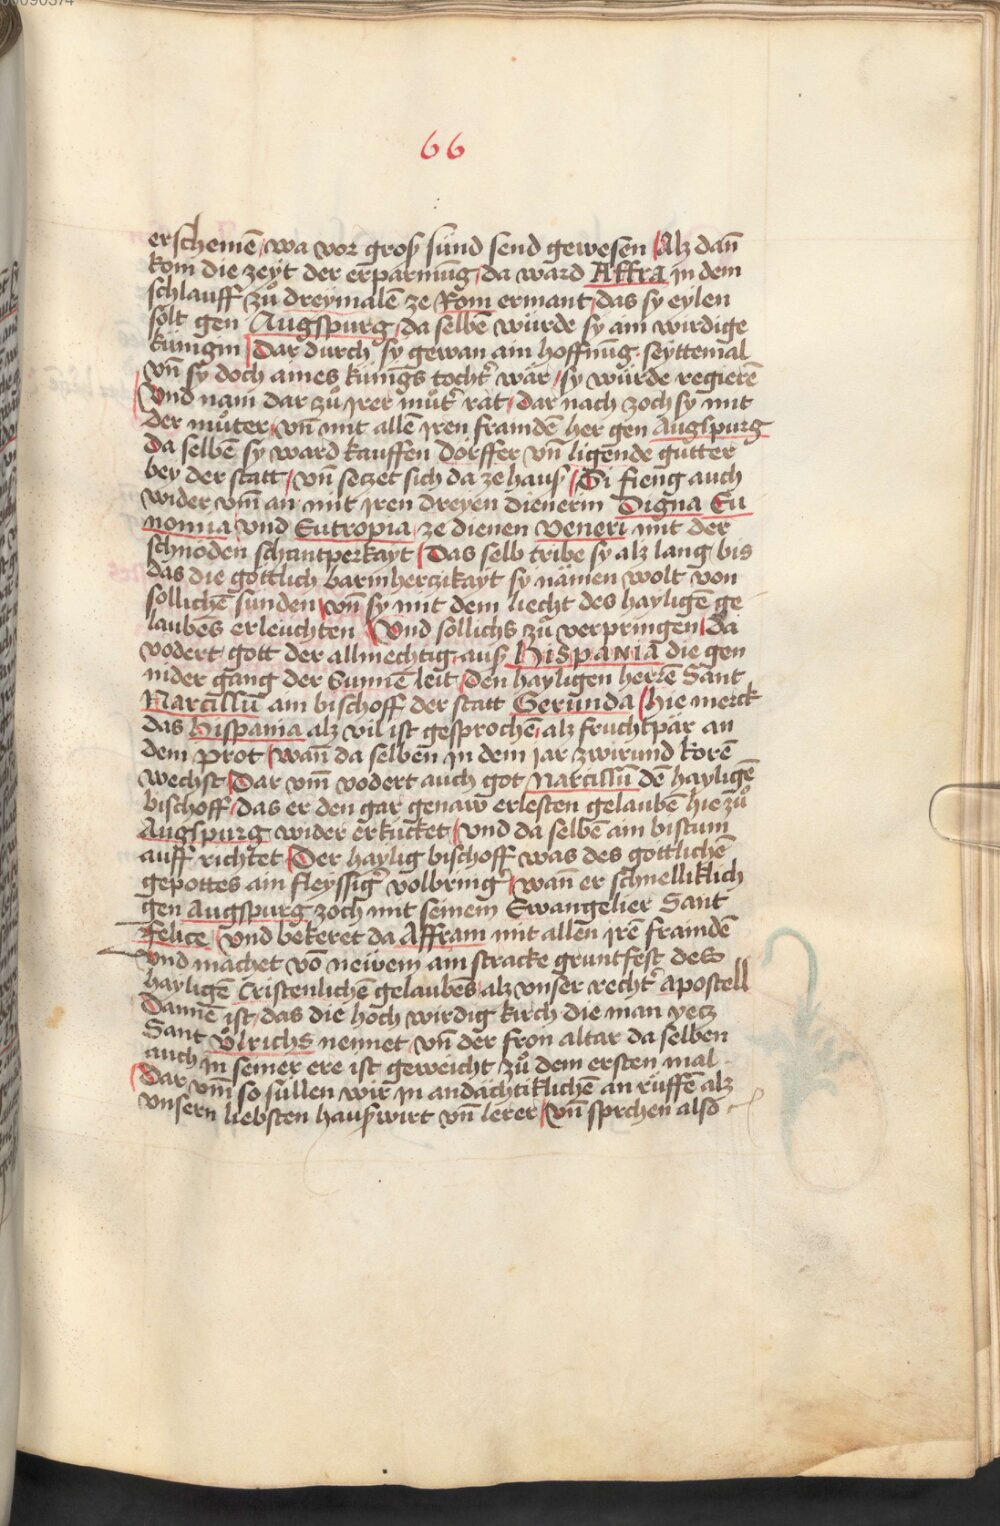 66
erscheinē / wa vor groß sünd send gewesen / Alz dan̄
kom die zeyt der erparmūg / da ward Affra jn dem
schlauff zuͦ dreymalē ze Rom ermant / das sy eylen
solt gen Augspurg / da selbē würde sy ain wirdige
künigin / Dar durch sy gewan ain hoffnūg · seyttemal
vn̄ sy doch aines künigs tochtˀ wär / sy würde regierē
Vnd nam dar zuͦ jrer muͦtˀ rät / dar nach zoch sy mit
der muͦter / vn̄ mit allē jren frainde her gen Augspurg
da selben sy ward kauffen dörffer vn̄ ligende guͤtter
bey der statt / vn̄ seczet sich da ze hauß / Si fieng auch
wider vm̄ an mit jren dreyen dienerin Digna Eu
nomia / vnd Eutropia / ze dienen Veneri mit der
schnöden schantperkayt / Das selb tribe sy alz lang bis
das die göttlich barmherczikayt sy nämen wolt von
söllichē sünden / vn̄ sy mit dem liecht des hayligē ge
laubens erleuchten / Vnd söllichs zuͦ verpringen / da
vodert gott der allmechtig auß Hispania die gen
nider gang der Sunnē leit / den hayligen herrē Sant
Narcissū ain bischoff der statt Gerunda / hie merck
das Hispania alz vil ist gesprochē / alz fruchtpär an
dem prot / wan̄ da selben jn dem jar zwirund korē
wechst / Dar vm̄ vodert auch got Narcissū dē hayligē
bischoff / das er den gar genaw erlesten gelaubē hie zuͦ
Augspurg wider erkücket / vnd da selbē ain bistum
auff richtet / Der haylig bischoff was des göttlichē
gepottes ain fleyssigˀ volbringˀ / wan̄ er schnelliklich
gen Augspurg zoch mit seinem Ewangelier Sant
Felice / vnd bekeret da Affram mit allen jrē fraindē
vnd machet vō neuem ain starcke gruntfest des
hayligē Cristenlichē gelaubēs / alz vnser rechtˀ apostell
Dannē ist / das die hoch wirdig kirch die man yecz
Sant Uͦlrichs nennet / vn̄ der fron altar da selben
auch jn seiner ere ist geweicht zuͦ dem ersten mal
Dar vm̄ so süllen wir jn andächtiklichē an rüffē alz
vnsern liebsten haußwirt vn̄ lerer / vn̄ sprchen also